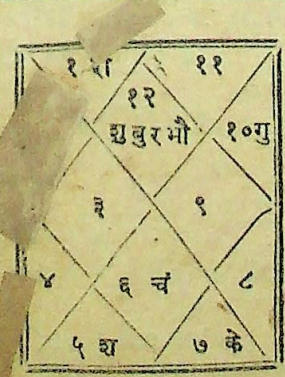 १ रा ११
१२
शु बु र भौ १० गु
३ ९
४ ६ चं ८
५ श ७ के